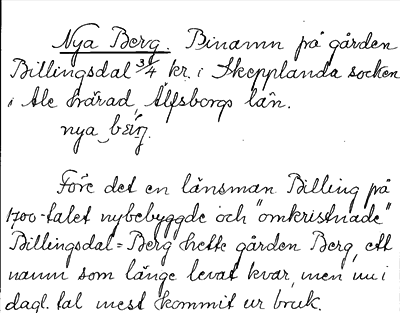 Nya Berg. Binamn på gården
Billingsdal 3/4 kr. i Skepplanda socken
i Ale härad, Älfsborgs län.
nya bärj.
Före det en länsman Billing på
1700-talet nybebyggde och "omkristnade"
Billingsdal = Berg hette gården Berg, ett
namn som länge levat kvar, men nu i
dagl. tal mest kommit ur bruk.